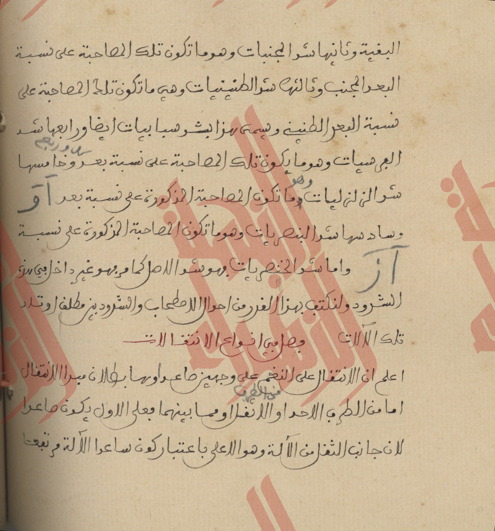 البقية وثانيها شد المجنبات وهو ما تكون تلك المصاحبة على نسبة
البعد المجنب وثالثها شد الطنينيات وهي ما تكون تلك المصاحبة على
نسبة البعد الطنيني ويسمى هذا بشد سبابيات ايضا ورابعها شد
الفرسيات وهو ما يكون تلك المصاحبة على نسبة بعد وخامسها
شد الزلزليات وهو ما تكون المصاحبة المذكورة على نسبة بعد
وسادسها شد البنصريات وهو ما تكون المصاحبة المذكورة على نسبة
واما شد الخنصريات فهو شد الاصل كما مر فهو غير داخل في هذه
الشدود ولنكتف بهذا القدر من احوال الاصطحاب والشدود في مطلق اوتار
تلك الآلات فصل في انواع الانتقالات
اعلم ان الانتقال على النغم على وجهين صاعد وهابط لان مبدا الانتقال
اما من الطرف الاحد او الاثقل او مما بينهما فعلى الاول يكون صاعدا
لان جانب الثقل من الآلة وهو الاعلى باعتبار كون ساعد الآلة مرتفعا